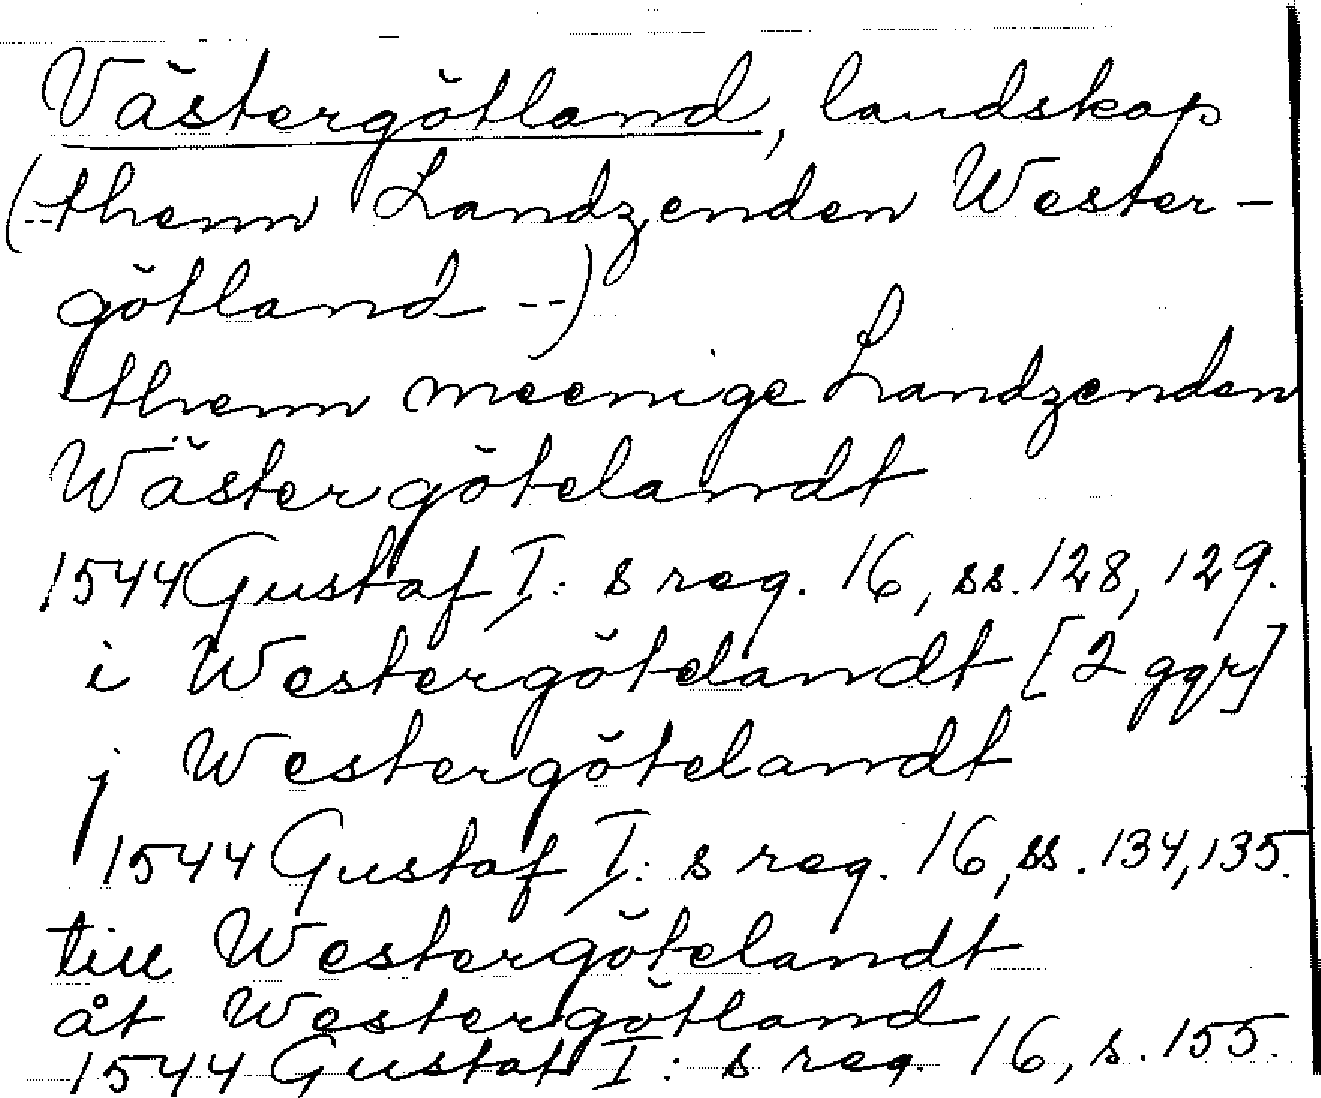 Västergötland, landskap
(--thenn Landzenden Wester-
götland --)
thenn meenige Landzenden
Wästergötelandt
1544 Gustaf I:s reg. 16, ss. 128, 129.
i Westergötelandt [2 ggr]
j Westergötelandt
1544 Gustaf I:s reg. 16, ss. 134, 135.
till Westergötelandt
åt Westergötland
1544 Gustaf I:s reg. 16, s. 155.